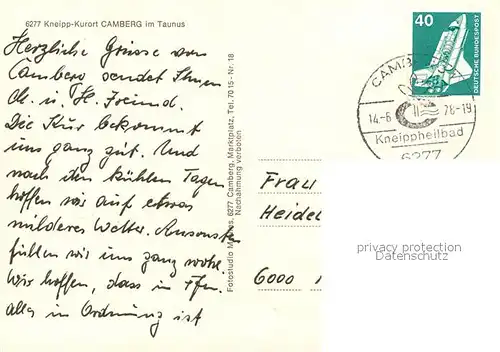 6277 Kneipp-Kurort CAMBERG im Taunus
Herzliche Grüsse von
Camberg sendet Ihnen
u. H. Freund.
Die Kur bekommt
uns ganz gut. Und
nach den kühlen Tagen
hoffen wir auf etwas
milderes Wetter. Ansonsten
fühlen wir uns ganz wohl.
Wir hoffen, dass in Ffm.
alles in Ordnung ist
Fotostudio 6277 Camberg, Marktplatz, Tel. 7015 - Nr. 18
Nachahmung verboten
40
DEUTSCHE BUNDESPOST
CAMB
14.-6
78-19
Kneippheilbad
6277
Frau
Heide
6000
privacy protection
Datenschutz